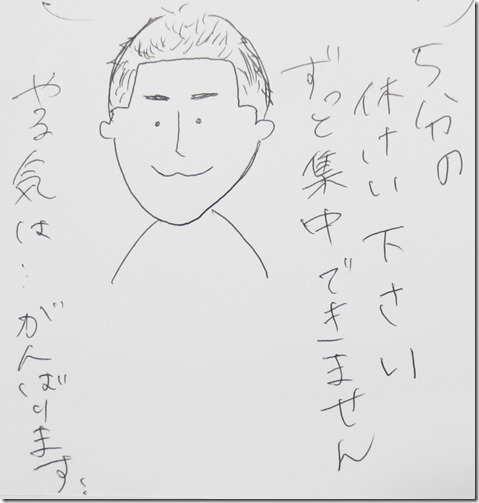 5分の
休けい下さい
ずっと集中できません
やる気は…がんばります。